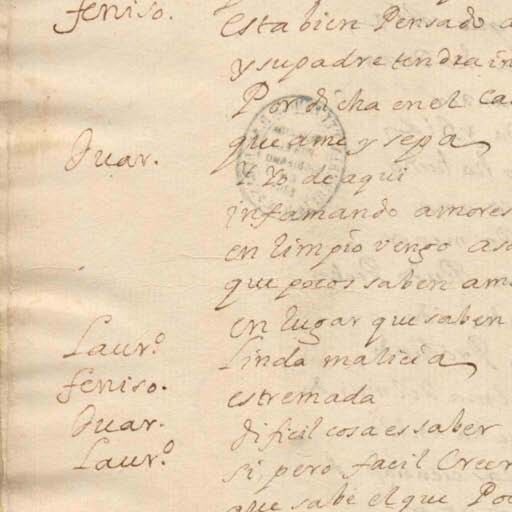 feniso. esta bien Pensado
y su padre tendra
Por dicha en el
que ame y sepa
Duar. Yo de aqui
infamando amores
en limpio vengo
que pocos saben
en lugar que saben
Laur.º Linda malicia
feniso. estremada
Duar. dificil cosa es saber
Laur.º si, pero facil Creer
que sabe el que